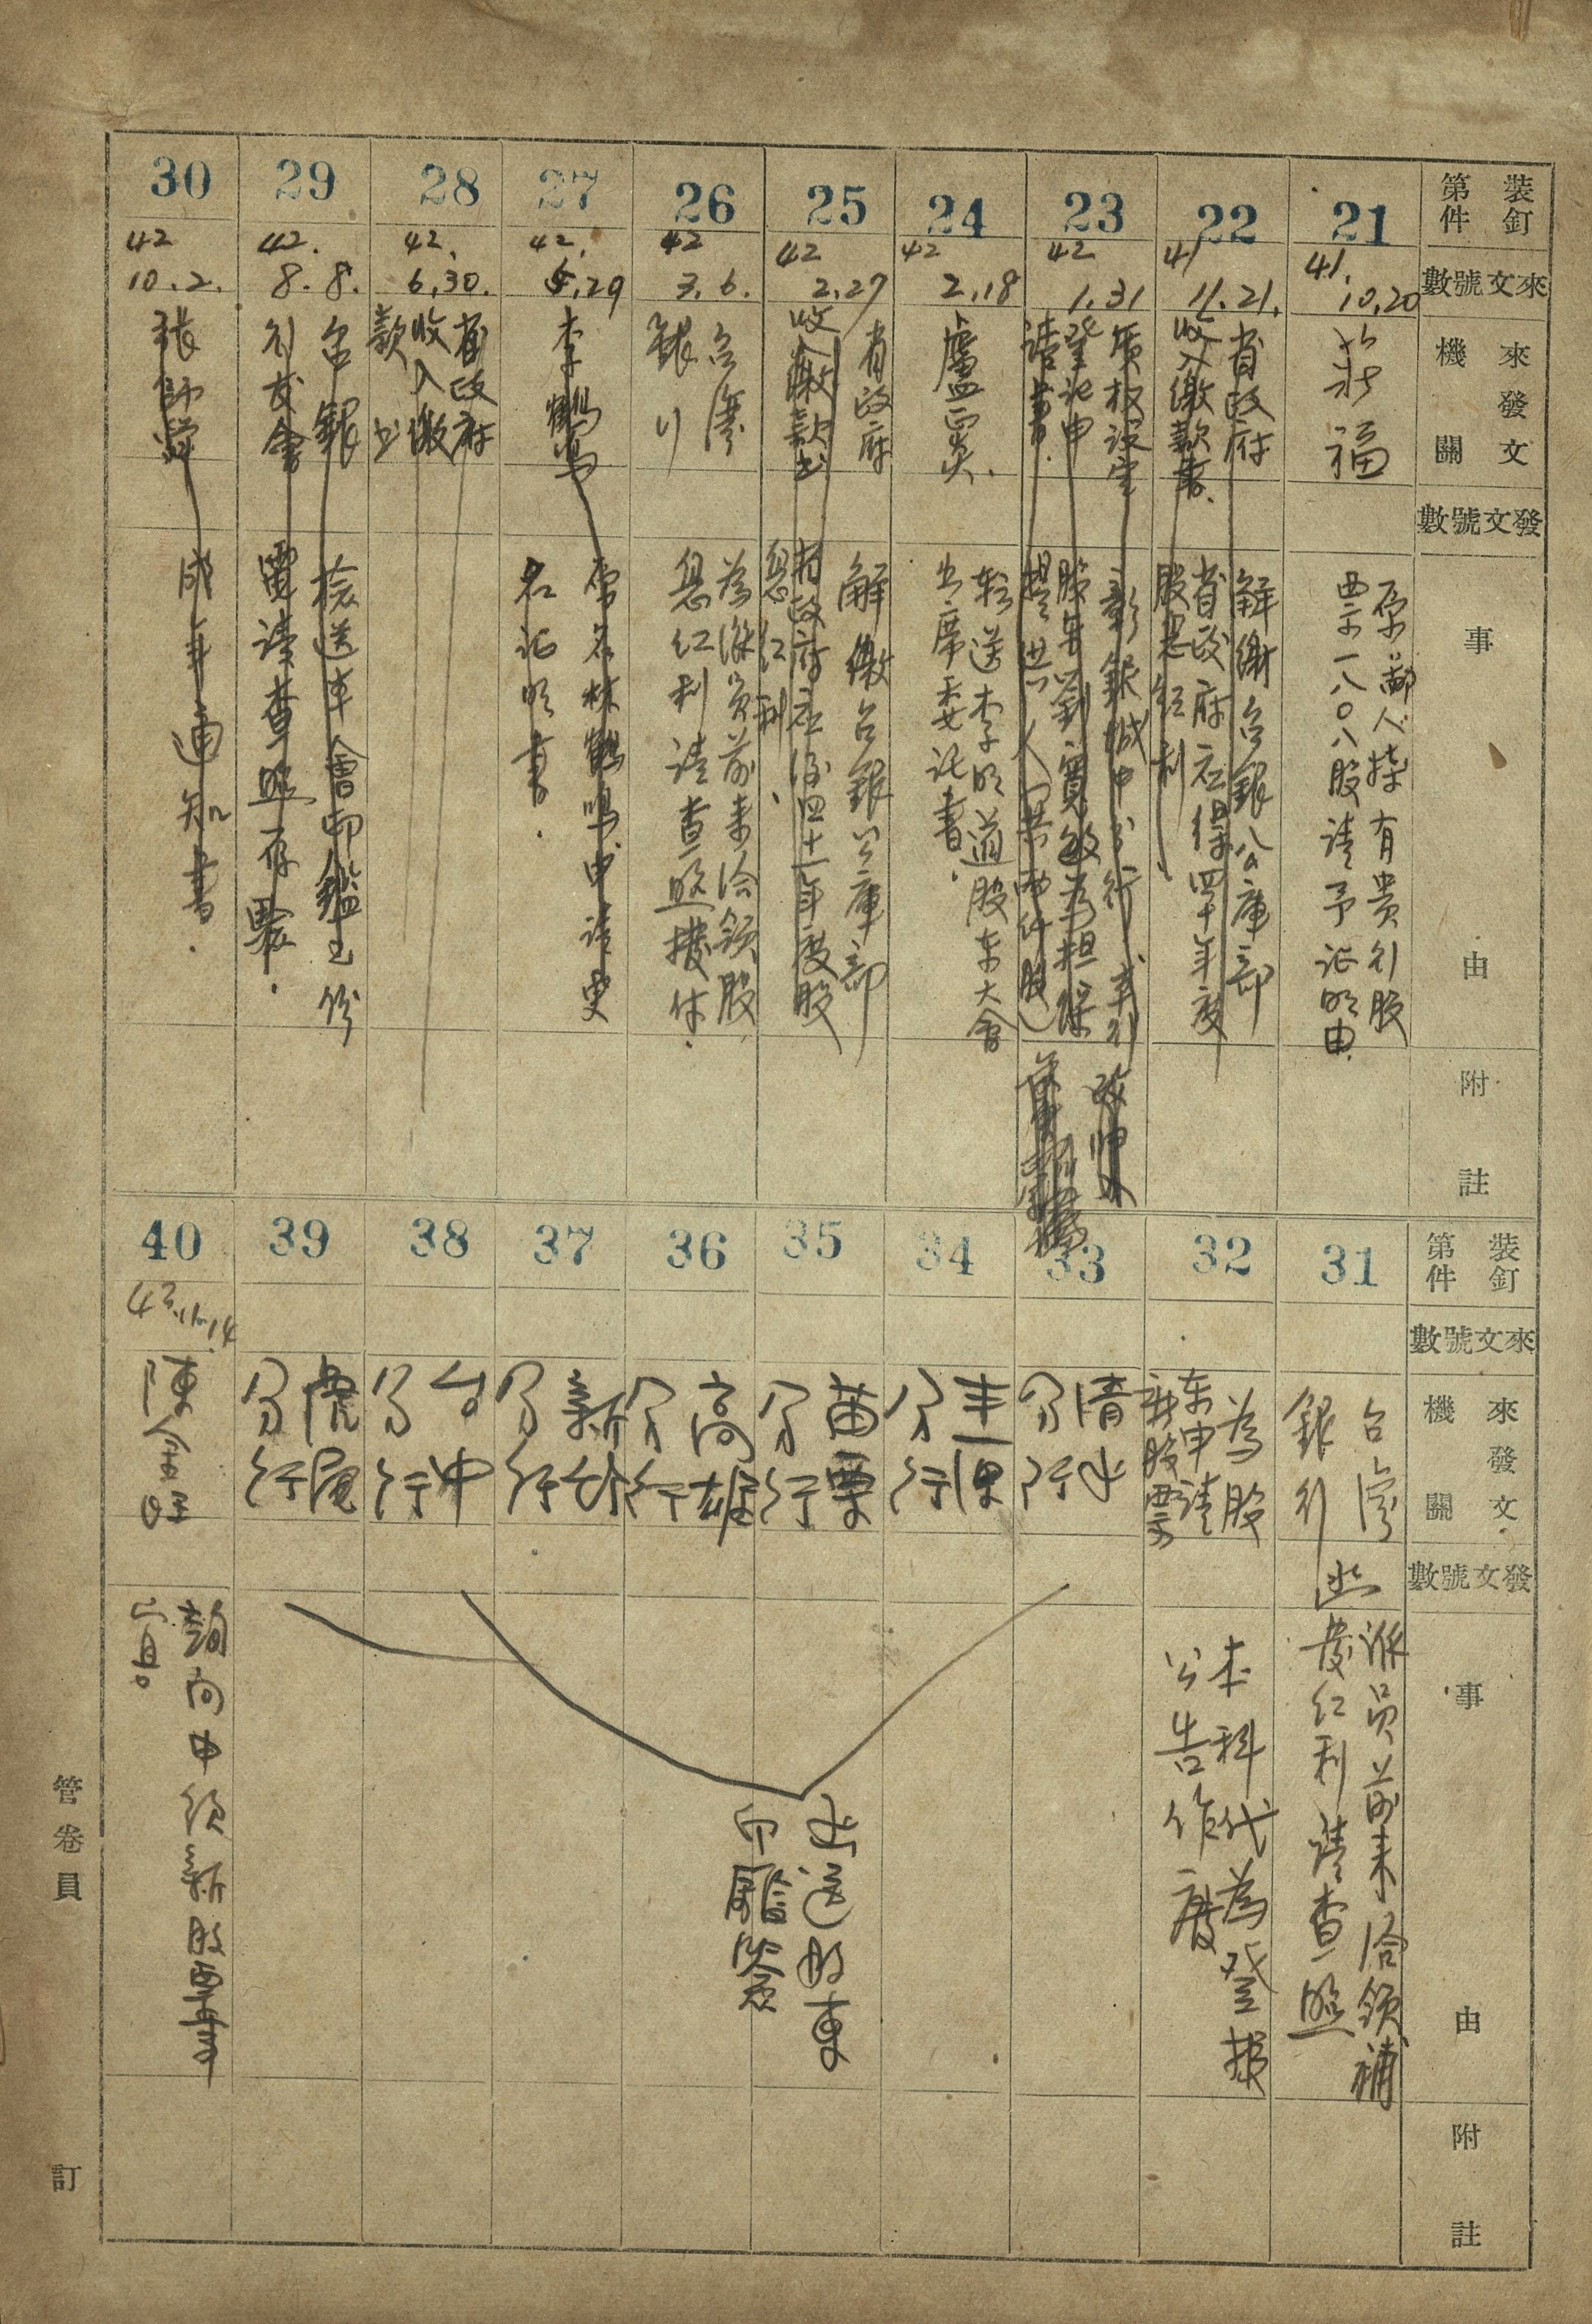 裝釘
第件
來文號數
來發文
機關
發文號數
事由
附註
21
41.
10,20
莊福
原鄙人持有貴行股
票一八〇八股請予證明由.
22
41
11.21.
省政府
收入繳款書.
解繳台銀公庫部
省政府應得四十年度
股息紅利
23
42
1.31
質权設定
登記申
請書.
彰銀城中分行
股東劉寬敏為担保
提供人
24
42
2,18
盧正炎.
轉送李明道股东大會
出席委託書.
25
42
2,27
省政府
收入繳款書
解繳台銀公庫部
省政府應得四十一年度股
息紅利.
26
42
3.6.
台灣
銀行
為派員前来洽領股
息紅利請查照撥付.
27
42.
5,29
李鶴鳴
原名林鶴鳴申請更
名証明書.
28
42.
6,30.
省政府
收入繳
款書
29
42.
8.8.
台銀
行友會
檢送本會印鑑乙份
電請查照存案.
30
42
10.2.
張
成年通知書.
裝釘
第件
來文號數
來發文
機關
發文號數
事由
附註
31
台灣
銀行
派員前来洽領補
發紅利請查照
32
為股
东申請
新股票
本科代為登報
公告作廢
33
清水
分行
34
豊原
分行
35
苗栗
分行
送股東
印鑑簽
36
高雄
分行
37
新竹
分行
38
台中
分行
39
虎尾
分行
40
42.11.14
陳金旺
詢問申領新股票事
宜。
管卷員
訂